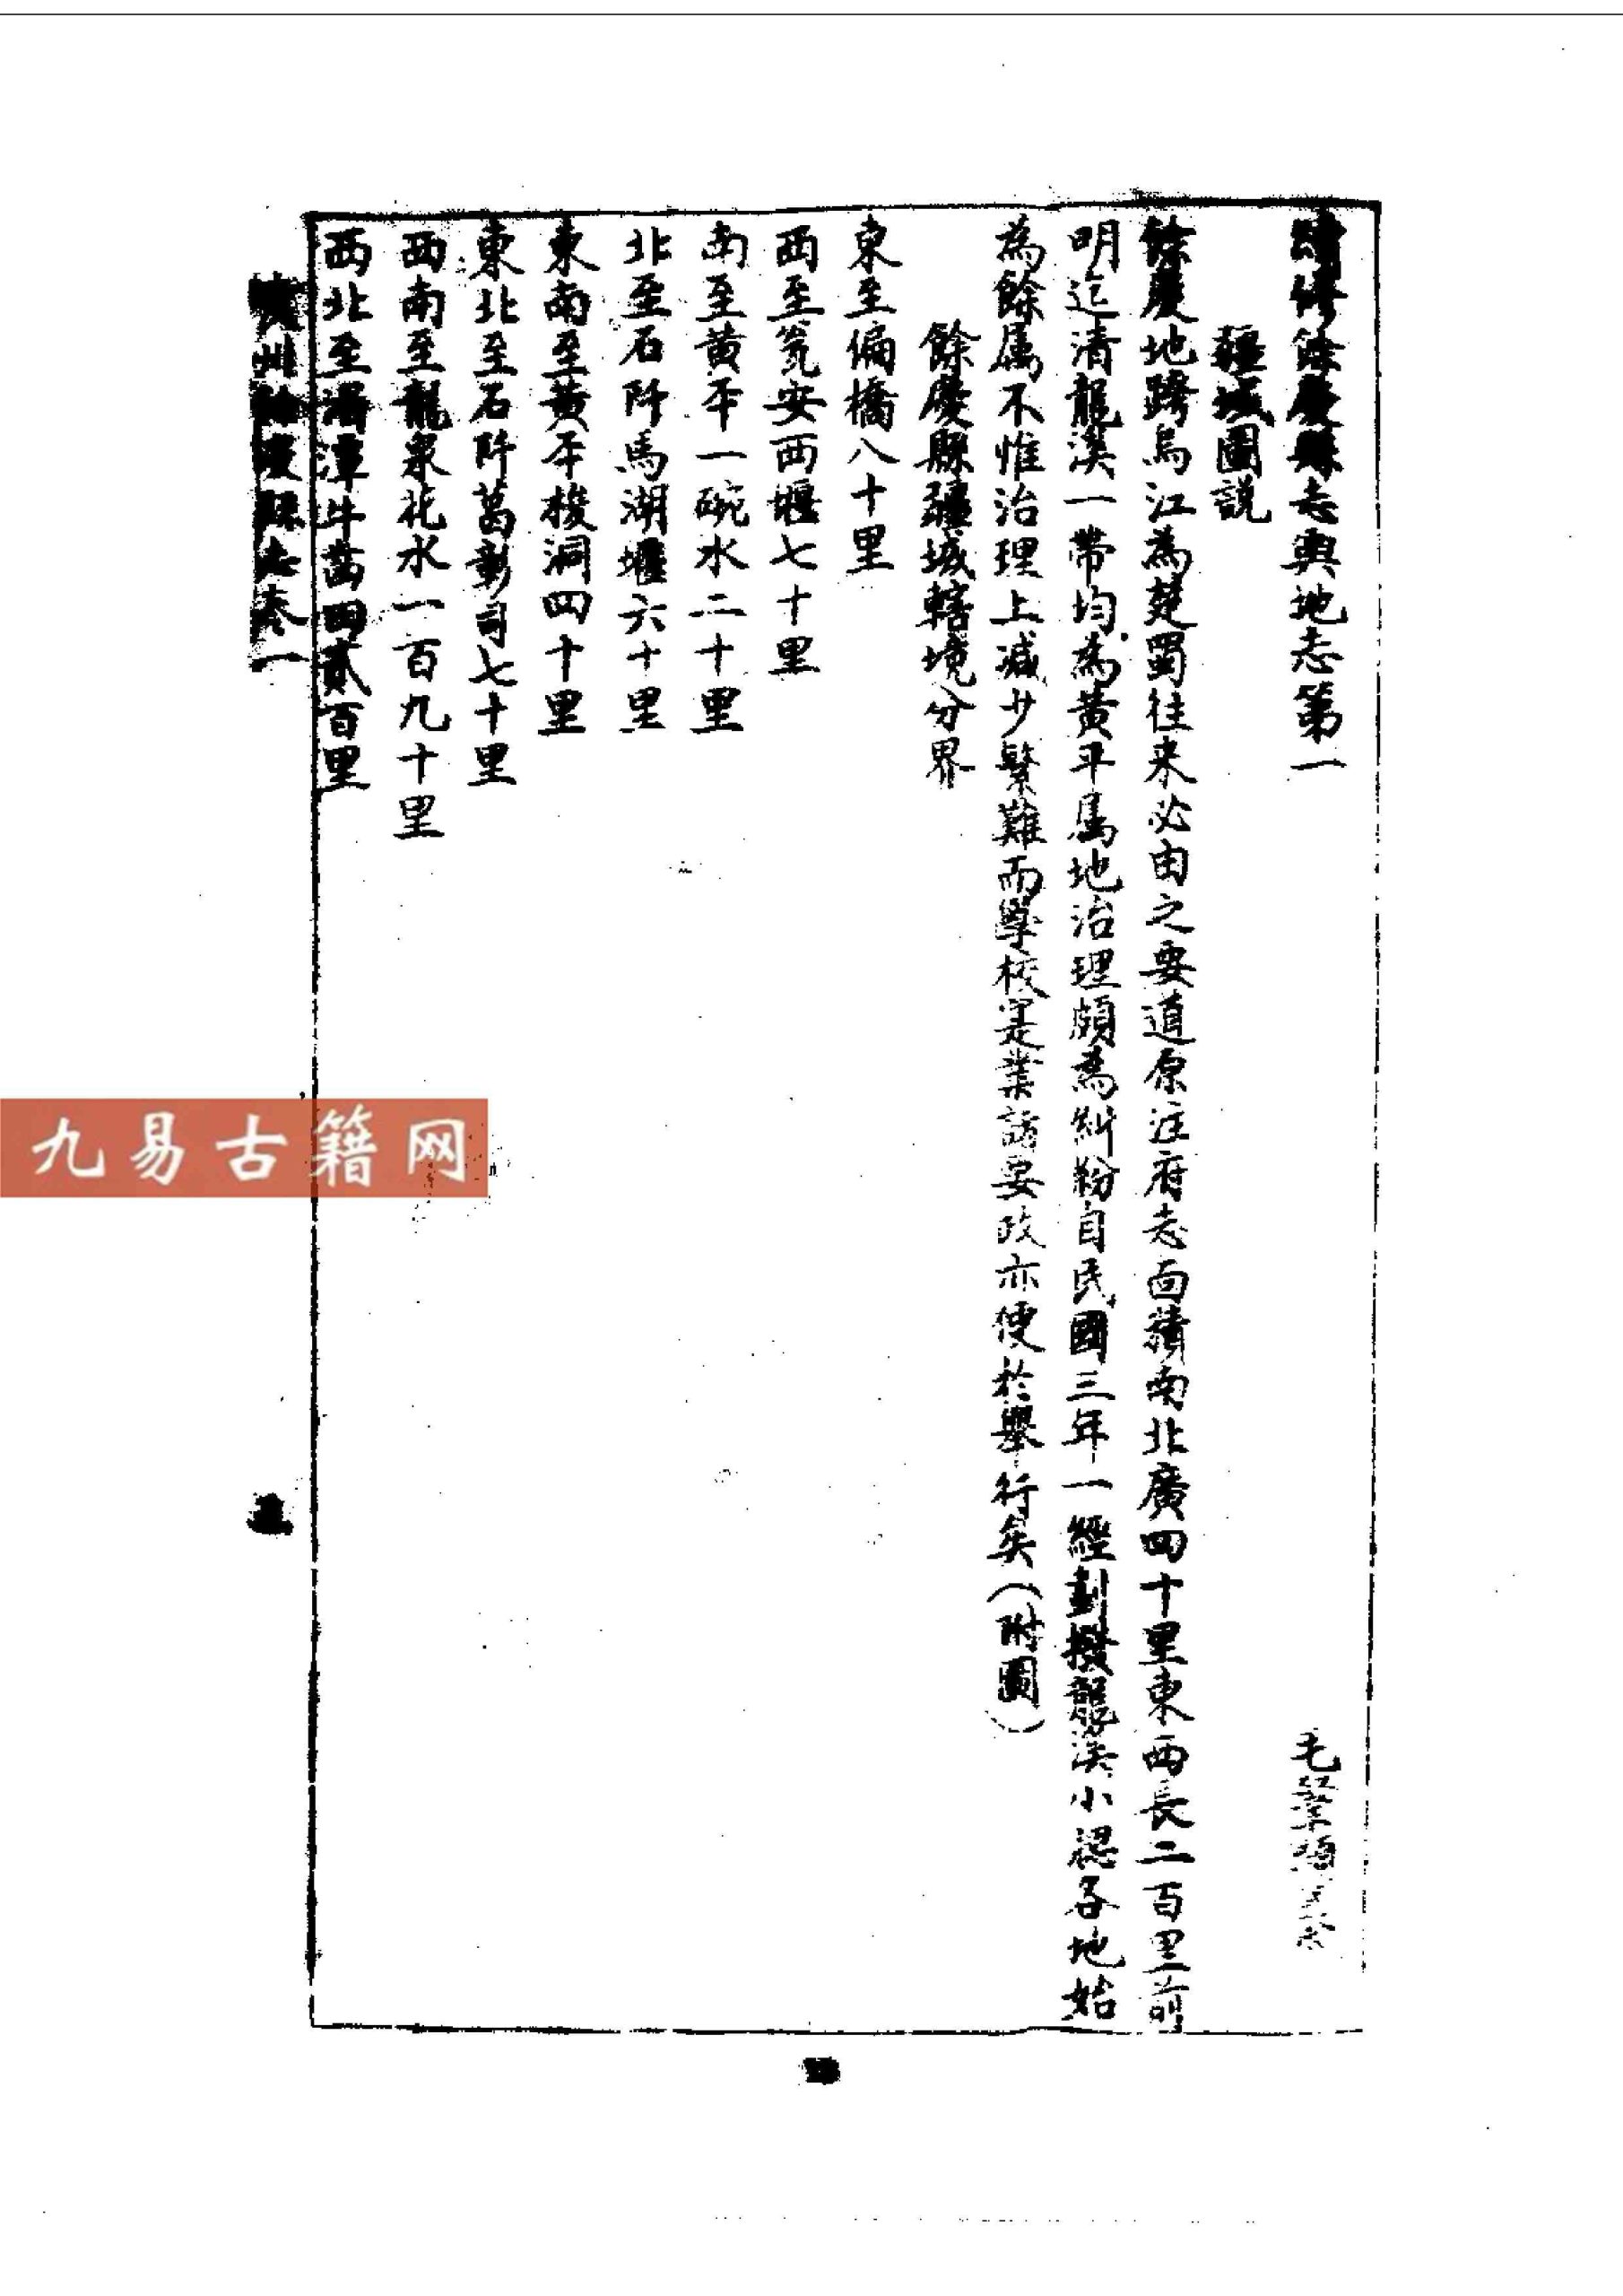 續修餘慶縣志輿地志第一
毛肇顯
疆域圖説
餘慶地跨烏江為楚蜀往来必由之要道原注府志面積南北廣四十里東西長二百里前
明迄清龍溪一帶均為黄平属地治理頗為糾紛自民國三年一經劃撥龍溪小腮各地始
為餘属不惟治理上减少繁難而學校寔業諸要政亦便於舉行矣(附圖)
餘慶縣疆域轄境分界
東至偏橋八十里
西至瓮安西堰七十里
南至黄平一碗水二十里
北至石阡馬湖堰六十里
東南至黄平梭洞四十里
東北至石阡葛彰司七十里
西南至龍泉花水一百九十里
西北至湄潭牛茵田貳百里
貴州餘慶縣志卷一
九易古籍网